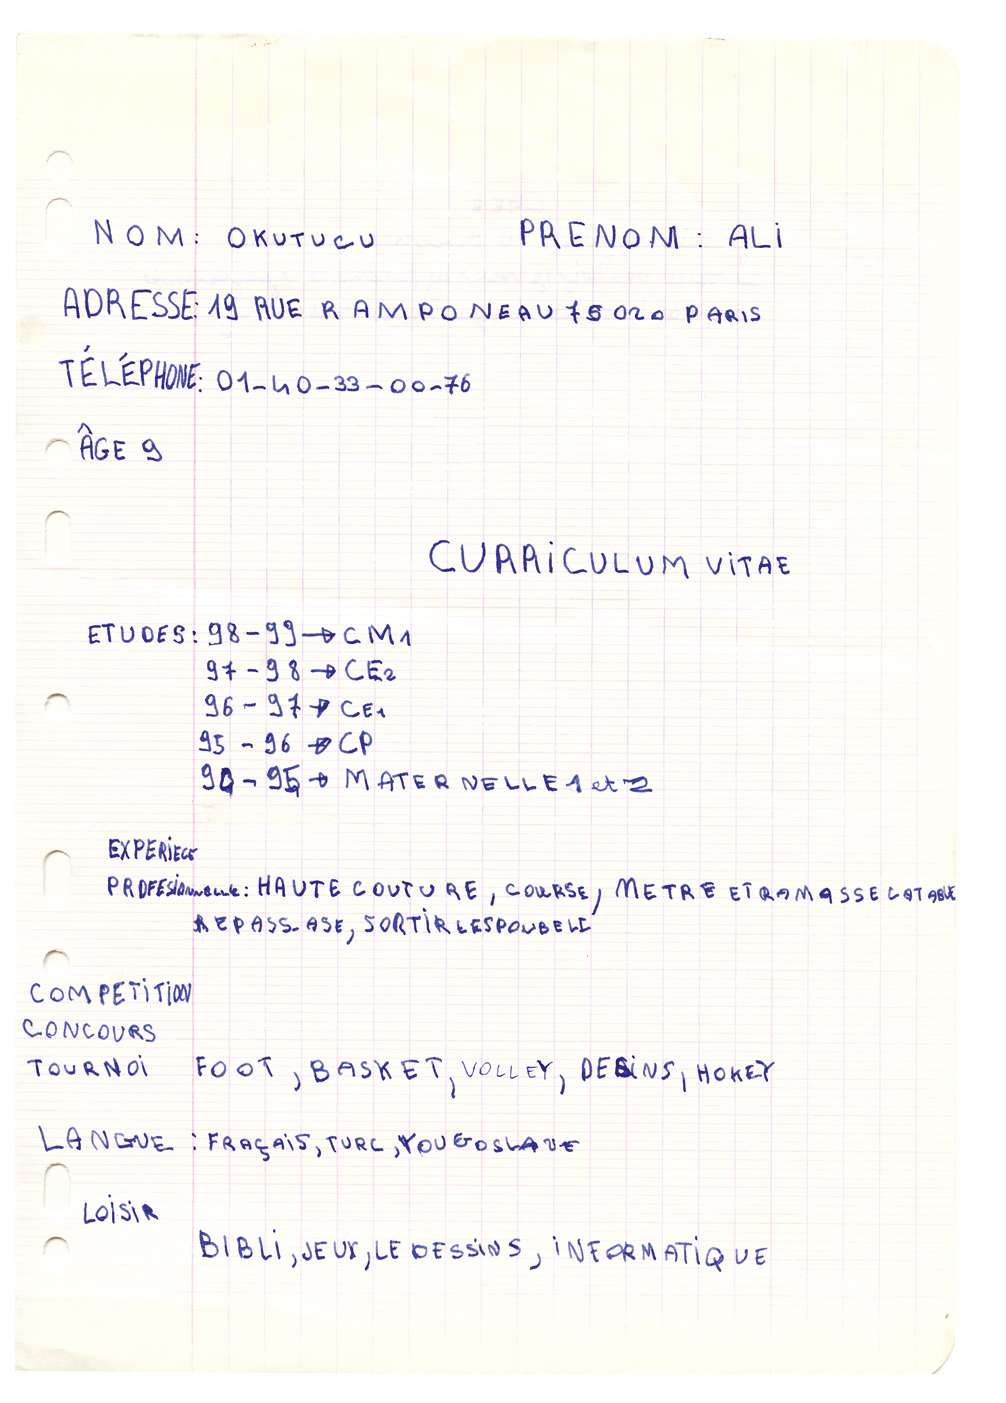 NOM: OKUTUCU PRENOM: ALi
ADRESSE: 19 RUE RAMPONEAU 75020 PARIS
TÉLÉPHONE: 01-40-33-00-76
ÂGE 9
CURRiCULUM ViTAE
ETUDES: 98-99→CM1
97-98→CE2
96-97→CE1
95-96→CP
90-95→MATERNELLE 1 et 2
EXPERiECE
PROFESiONNELLE: HAUTE COUTURE, COURSE, METRE ET RAMASSE LA TABLE
REPASSASE, SORTiR LES POUBELL
COMPETiTiON
CONCOURS
TOURNOi FOOT, BASKET, VOLLEY, DESiNS, HOKEY
LANGUE: FRAÇAiS, TURC, YOUGOSLAVE
LOiSiR
BiBLi, JEUX, LE DESSiNS, iNFORMATiQUE